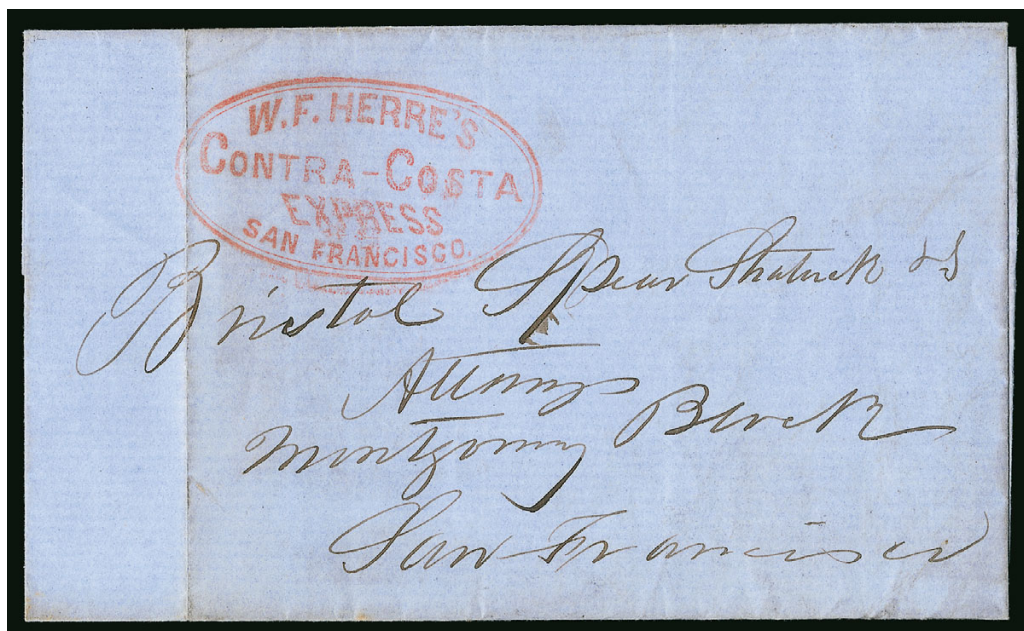 W.F. HERRE'S
CONTRA-COSTA
EXPRESS
SAN FRANCISCO.
Bristol Spear Shatuck
Attorneys
Montgomery Block
San Francisco